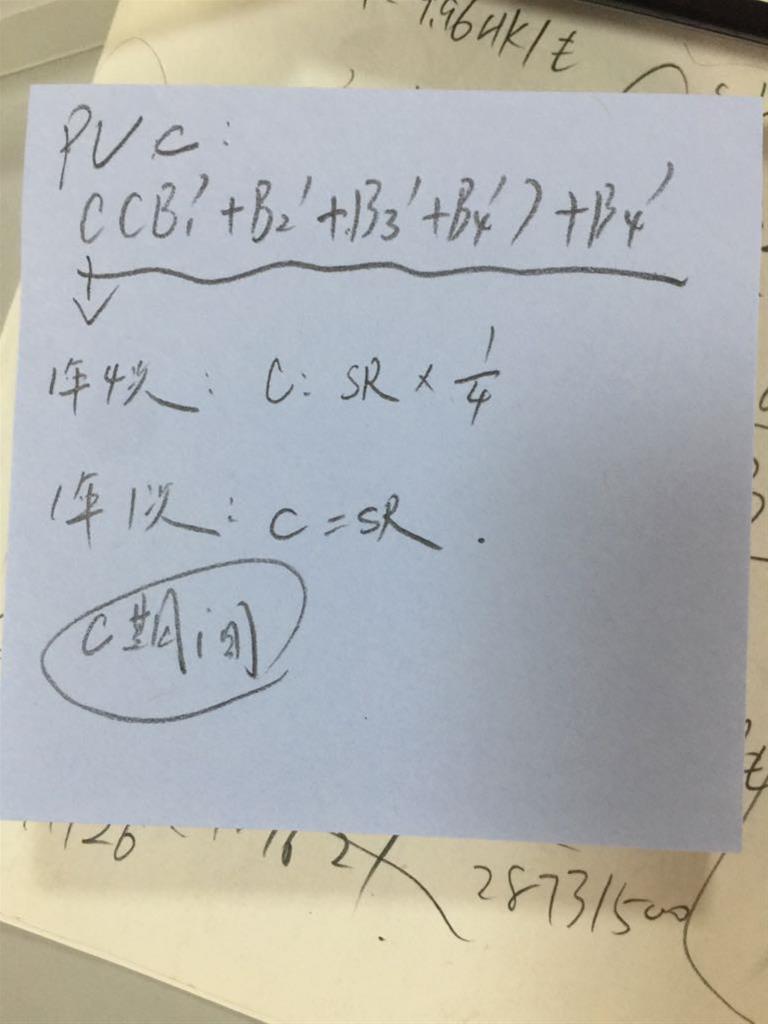 7.96 HK/t
PVC:
C(B₁'+B₂'+B₃'+B₄')+B₄'
1年4次: C: SR × 1/4
1年1次: C=SR.
C期间
126
28731500